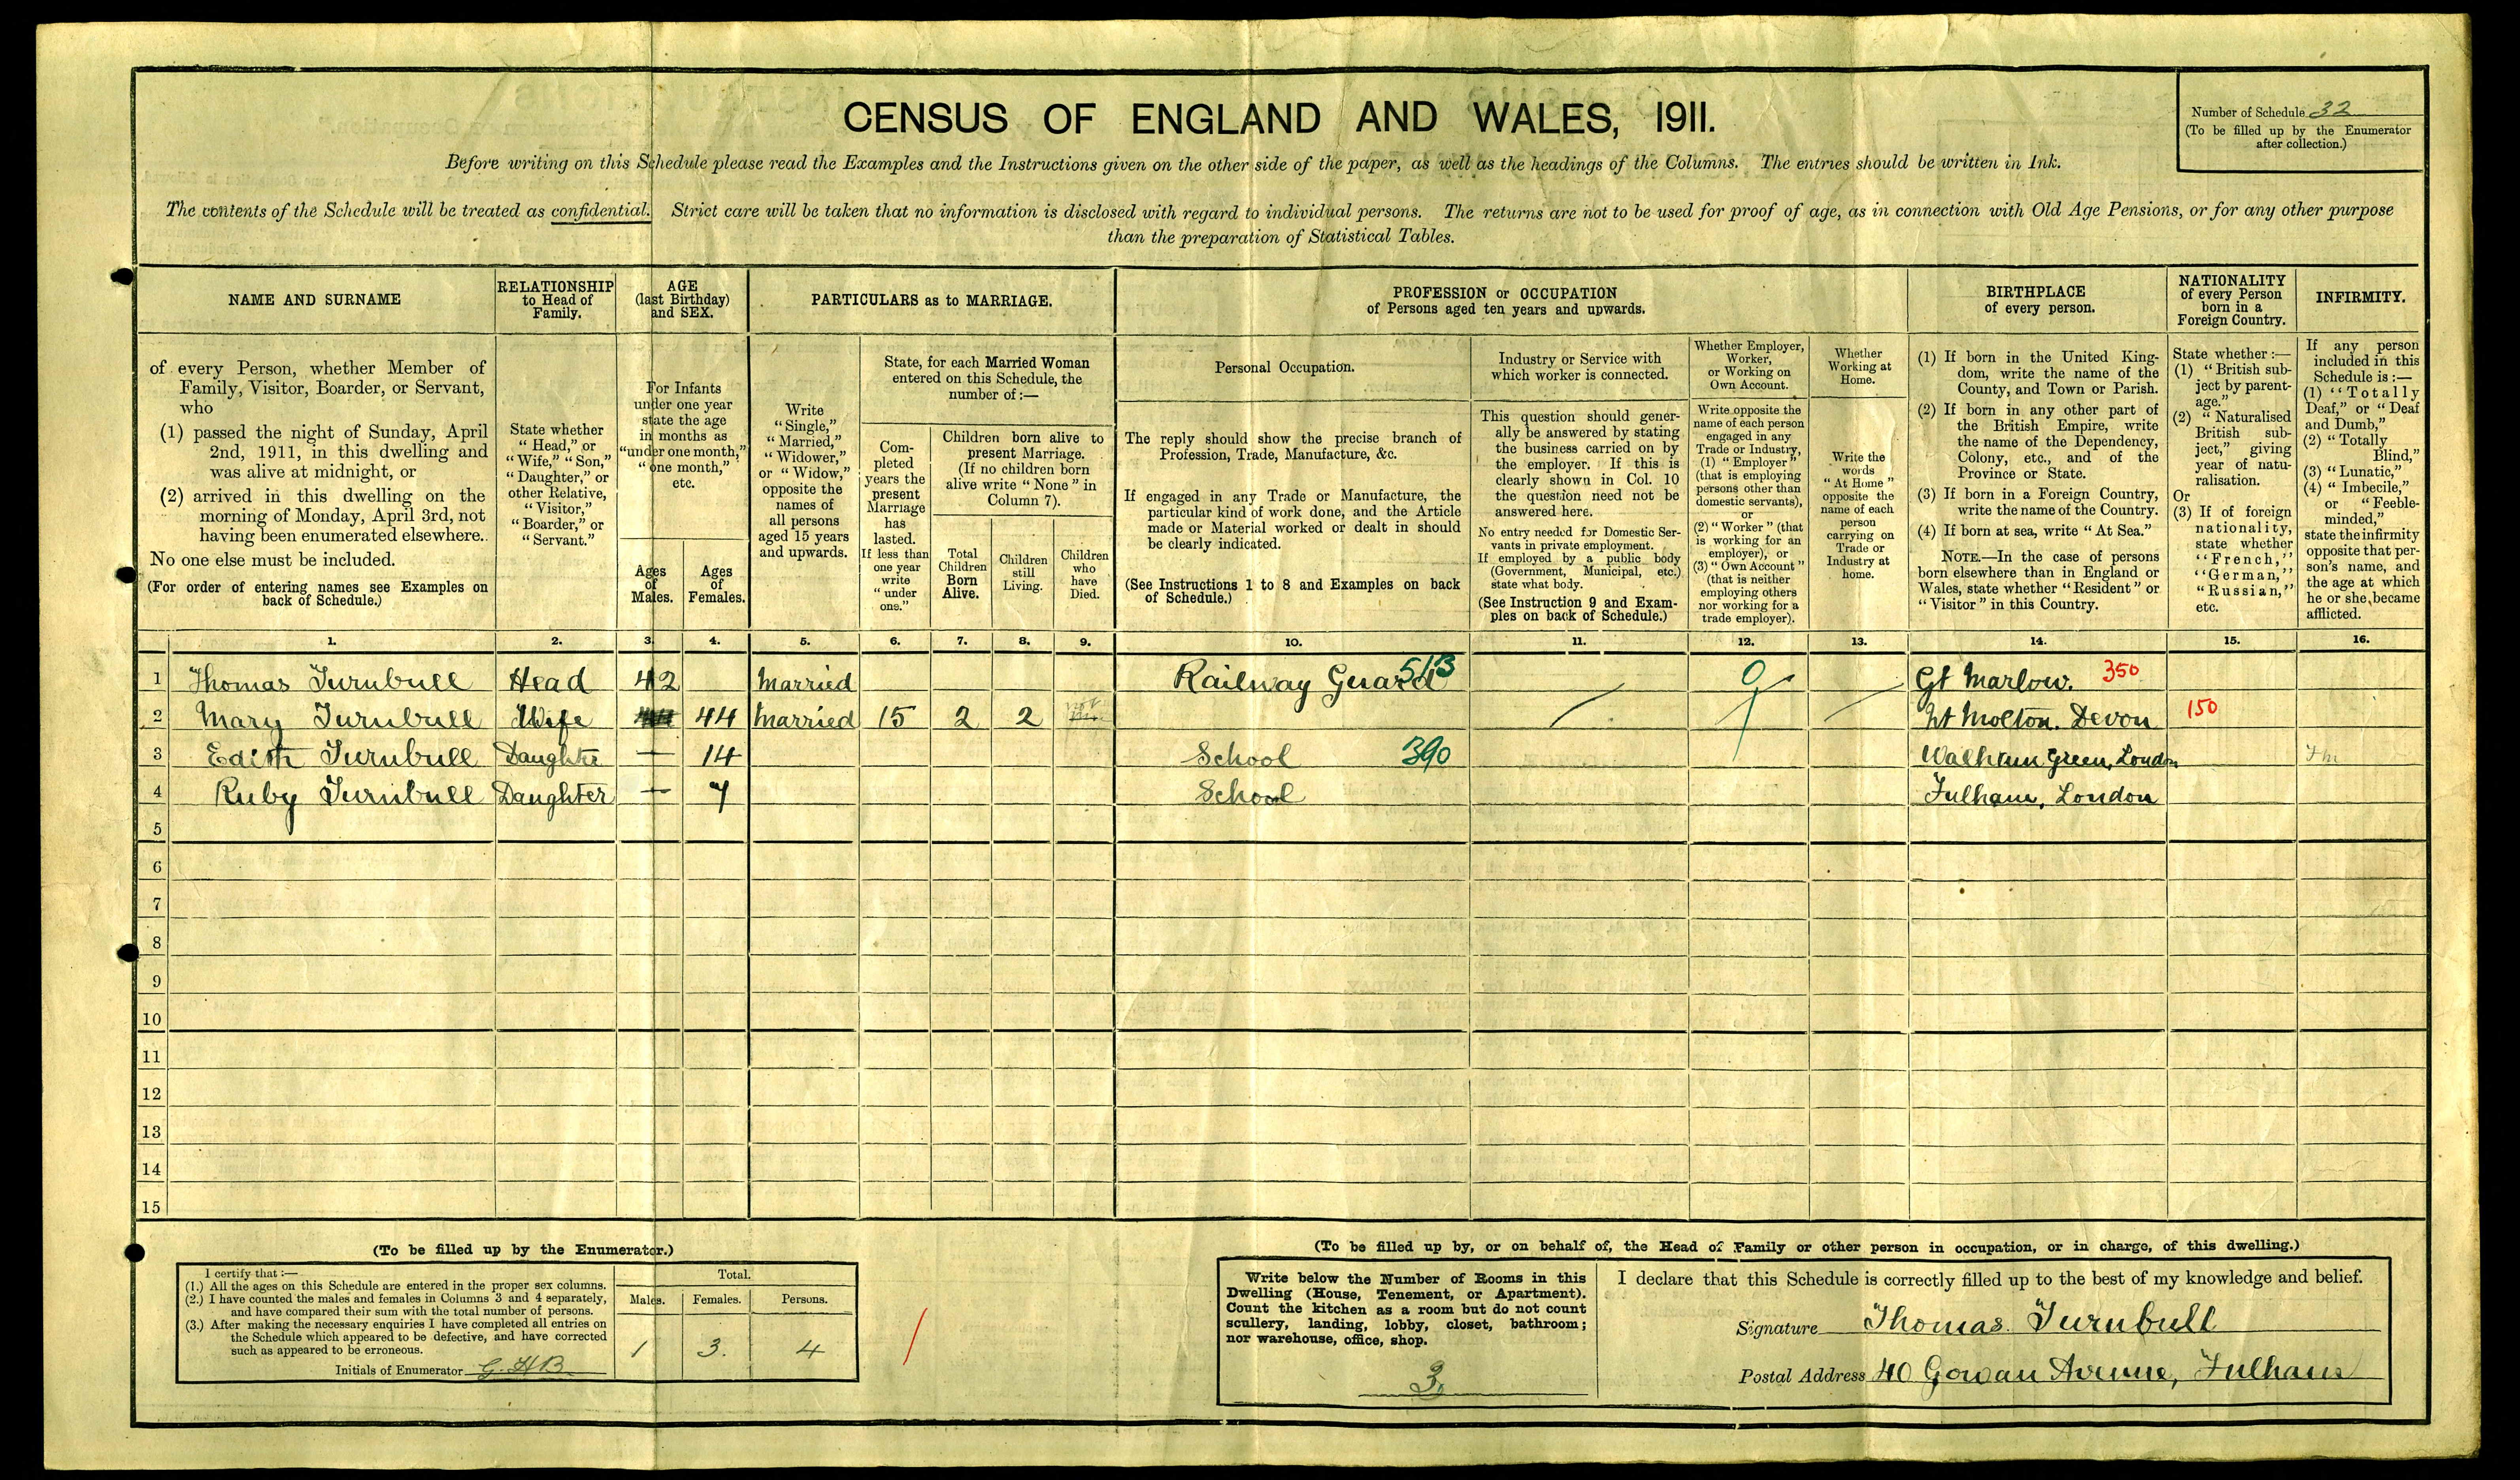 CENSUS OF ENGLAND AND WALES, 1911.
Number of Schedule 32
(To be filled up by the Enumerator
after collection.)
Before writing on this Schedule please read the Examples and the Instructions given on the other side of the paper, as well as the headings of the Columns. The entries should be written in Ink.
The contents of the Schedule will be treated as confidential. Strict care will be taken that no information is disclosed with regard to individual persons. The returns are not to be used for proof of age, as in connection with Old Age Pensions, or for any other purpose
than the preparation of Statistical Tables.
NAME AND SURNAME
of every Person, whether Member of
Family, Visitor, Boarder, or Servant,
who
(1) passed the night of Sunday, April
2nd, 1911, in this dwelling and
was alive at midnight, or
(2) arrived in this dwelling on the
morning of Monday, April 3rd, not
having been enumerated elsewhere.
No one else must be included.
(For order of entering names see Examples on
back of Schedule.)
RELATIONSHIP
to Head of
Family.
State whether
"Head," or
"Wife," "Son,"
"Daughter," or
other Relative,
"Visitor,"
"Boarder," or
"Servant."
AGE
(last Birthday)
and SEX.
For Infants
under one year
state the age
in months as
"under one month,"
"one month,"
etc.
Ages
of
Males.
Ages
of
Females.
PARTICULARS as to MARRIAGE.
Write
"Single,"
"Married,"
"Widower,"
or "Widow,"
opposite the
names of
all persons
aged 15 years
and upwards.
State, for each Married Woman
entered on this Schedule, the
number of:—
Com-
pleted
years the
present
Marriage
has
lasted.
If less than
one year
write
"under
one."
Children born alive to
present Marriage.
(If no children born
alive write "None" in
Column 7).
Total
Children
Born
Alive.
Children
still
Living.
Children
who
have
Died.
PROFESSION or OCCUPATION
of Persons aged ten years and upwards.
Personal Occupation.
The reply should show the precise branch of
Profession, Trade, Manufacture, &c.
If engaged in any Trade or Manufacture, the
particular kind of work done, and the Article
made or Material worked or dealt in should
be clearly indicated.
(See Instructions 1 to 8 and Examples on back
of Schedule.)
Industry or Service with
which worker is connected.
This question should gener-
ally be answered by stating
the business carried on by
the employer. If this is
clearly shown in Col. 10
the question need not be
answered here.
No entry needed for Domestic Ser-
vants in private employment.
If employed by a public body
(Government, Municipal, etc.)
state what body.
(See Instruction 9 and Exam-
ples on back of Schedule.)
Whether Employer,
Worker,
or Working on
Own Account.
Write opposite the
name of each person
engaged in any
Trade or Industry,
(1) "Employer"
(that is employing
persons other than
domestic servants),
or
(2) "Worker" (that
is working for an
employer), or
(3) "Own Account"
(that is neither
employing others
nor working for a
trade employer).
Whether
Working at
Home.
Write the
words
"At Home"
opposite the
name of each
person
carrying on
Trade or
Industry at
home.
BIRTHPLACE
of every person.
(1) If born in the United King-
dom, write the name of the
County, and Town or Parish.
(2) If born in any other part of
the British Empire, write
the name of the Dependency,
Colony, etc., and of the
Province or State.
(3) If born in a Foreign Country,
write the name of the Country.
(4) If born at sea, write "At Sea."
NOTE.—In the case of persons
born elsewhere than in England or
Wales, state whether "Resident" or
"Visitor" in this Country.
NATIONALITY
of every Person
born in a
Foreign Country.
State whether:—
(1) "British sub-
ject by parent-
age."
(2) "Naturalised
British sub-
ject," giving
year of natu-
ralisation.
Or
(3) If of foreign
nationality,
state whether
"French,"
"German,"
"Russian,"
etc.
INFIRMITY.
If any person
included in this
Schedule is:—
(1) "Totally
Deaf," or "Deaf
and Dumb,"
(2) "Totally
Blind,"
(3) "Lunatic,"
(4) "Imbecile,"
or "Feeble-
minded,"
state the infirmity
opposite that per-
son's name, and
the age at which
he or she became
afflicted.
1. 2. 3. 4. 5. 6. 7. 8. 9. 10. 11. 12. 13. 14. 15. 16.
1 Thomas Turnbull Head 42 Married Railway Guard 513 0 Gt Marlow. 350
2 Mary Turnbull Wife 44 Married 15 2 2 Nt Molton. Devon 150
3 Edith Turnbull Daughter — 14 School 390 Walham Green, London
4 Ruby Turnbull Daughter — 7 School Fulham, London
5
6
7
8
9
10
11
12
13
14
15
(To be filled up by the Enumerator.)
I certify that:—
(1.) All the ages on this Schedule are entered in the proper sex columns.
(2.) I have counted the males and females in Columns 3 and 4 separately,
and have compared their sum with the total number of persons.
(3.) After making the necessary enquiries I have completed all entries on
the Schedule which appeared to be defective, and have corrected
such as appeared to be erroneous.
Initials of Enumerator G. H B
Total.
Males. Females. Persons.
1 3. 4
(To be filled up by, or on behalf of, the Head of Family or other person in occupation, or in charge, of this dwelling.)
Write below the Number of Rooms in this
Dwelling (House, Tenement, or Apartment).
Count the kitchen as a room but do not count
scullery, landing, lobby, closet, bathroom;
nor warehouse, office, shop.
3
I declare that this Schedule is correctly filled up to the best of my knowledge and belief.
Signature Thomas Turnbull
Postal Address 40 Gowan Avenue, Fulham